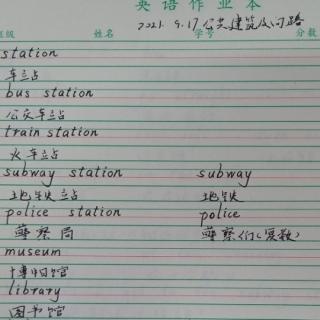 英语作业本
班级 姓名 学号 分数
2021. 9.17 公共建筑及问路
station
车站
bus station
公交车站
train station
火车站
subway station subway
地铁站 地铁
police station police
警察局 警察们(复数)
museum
博物馆
library
图书馆